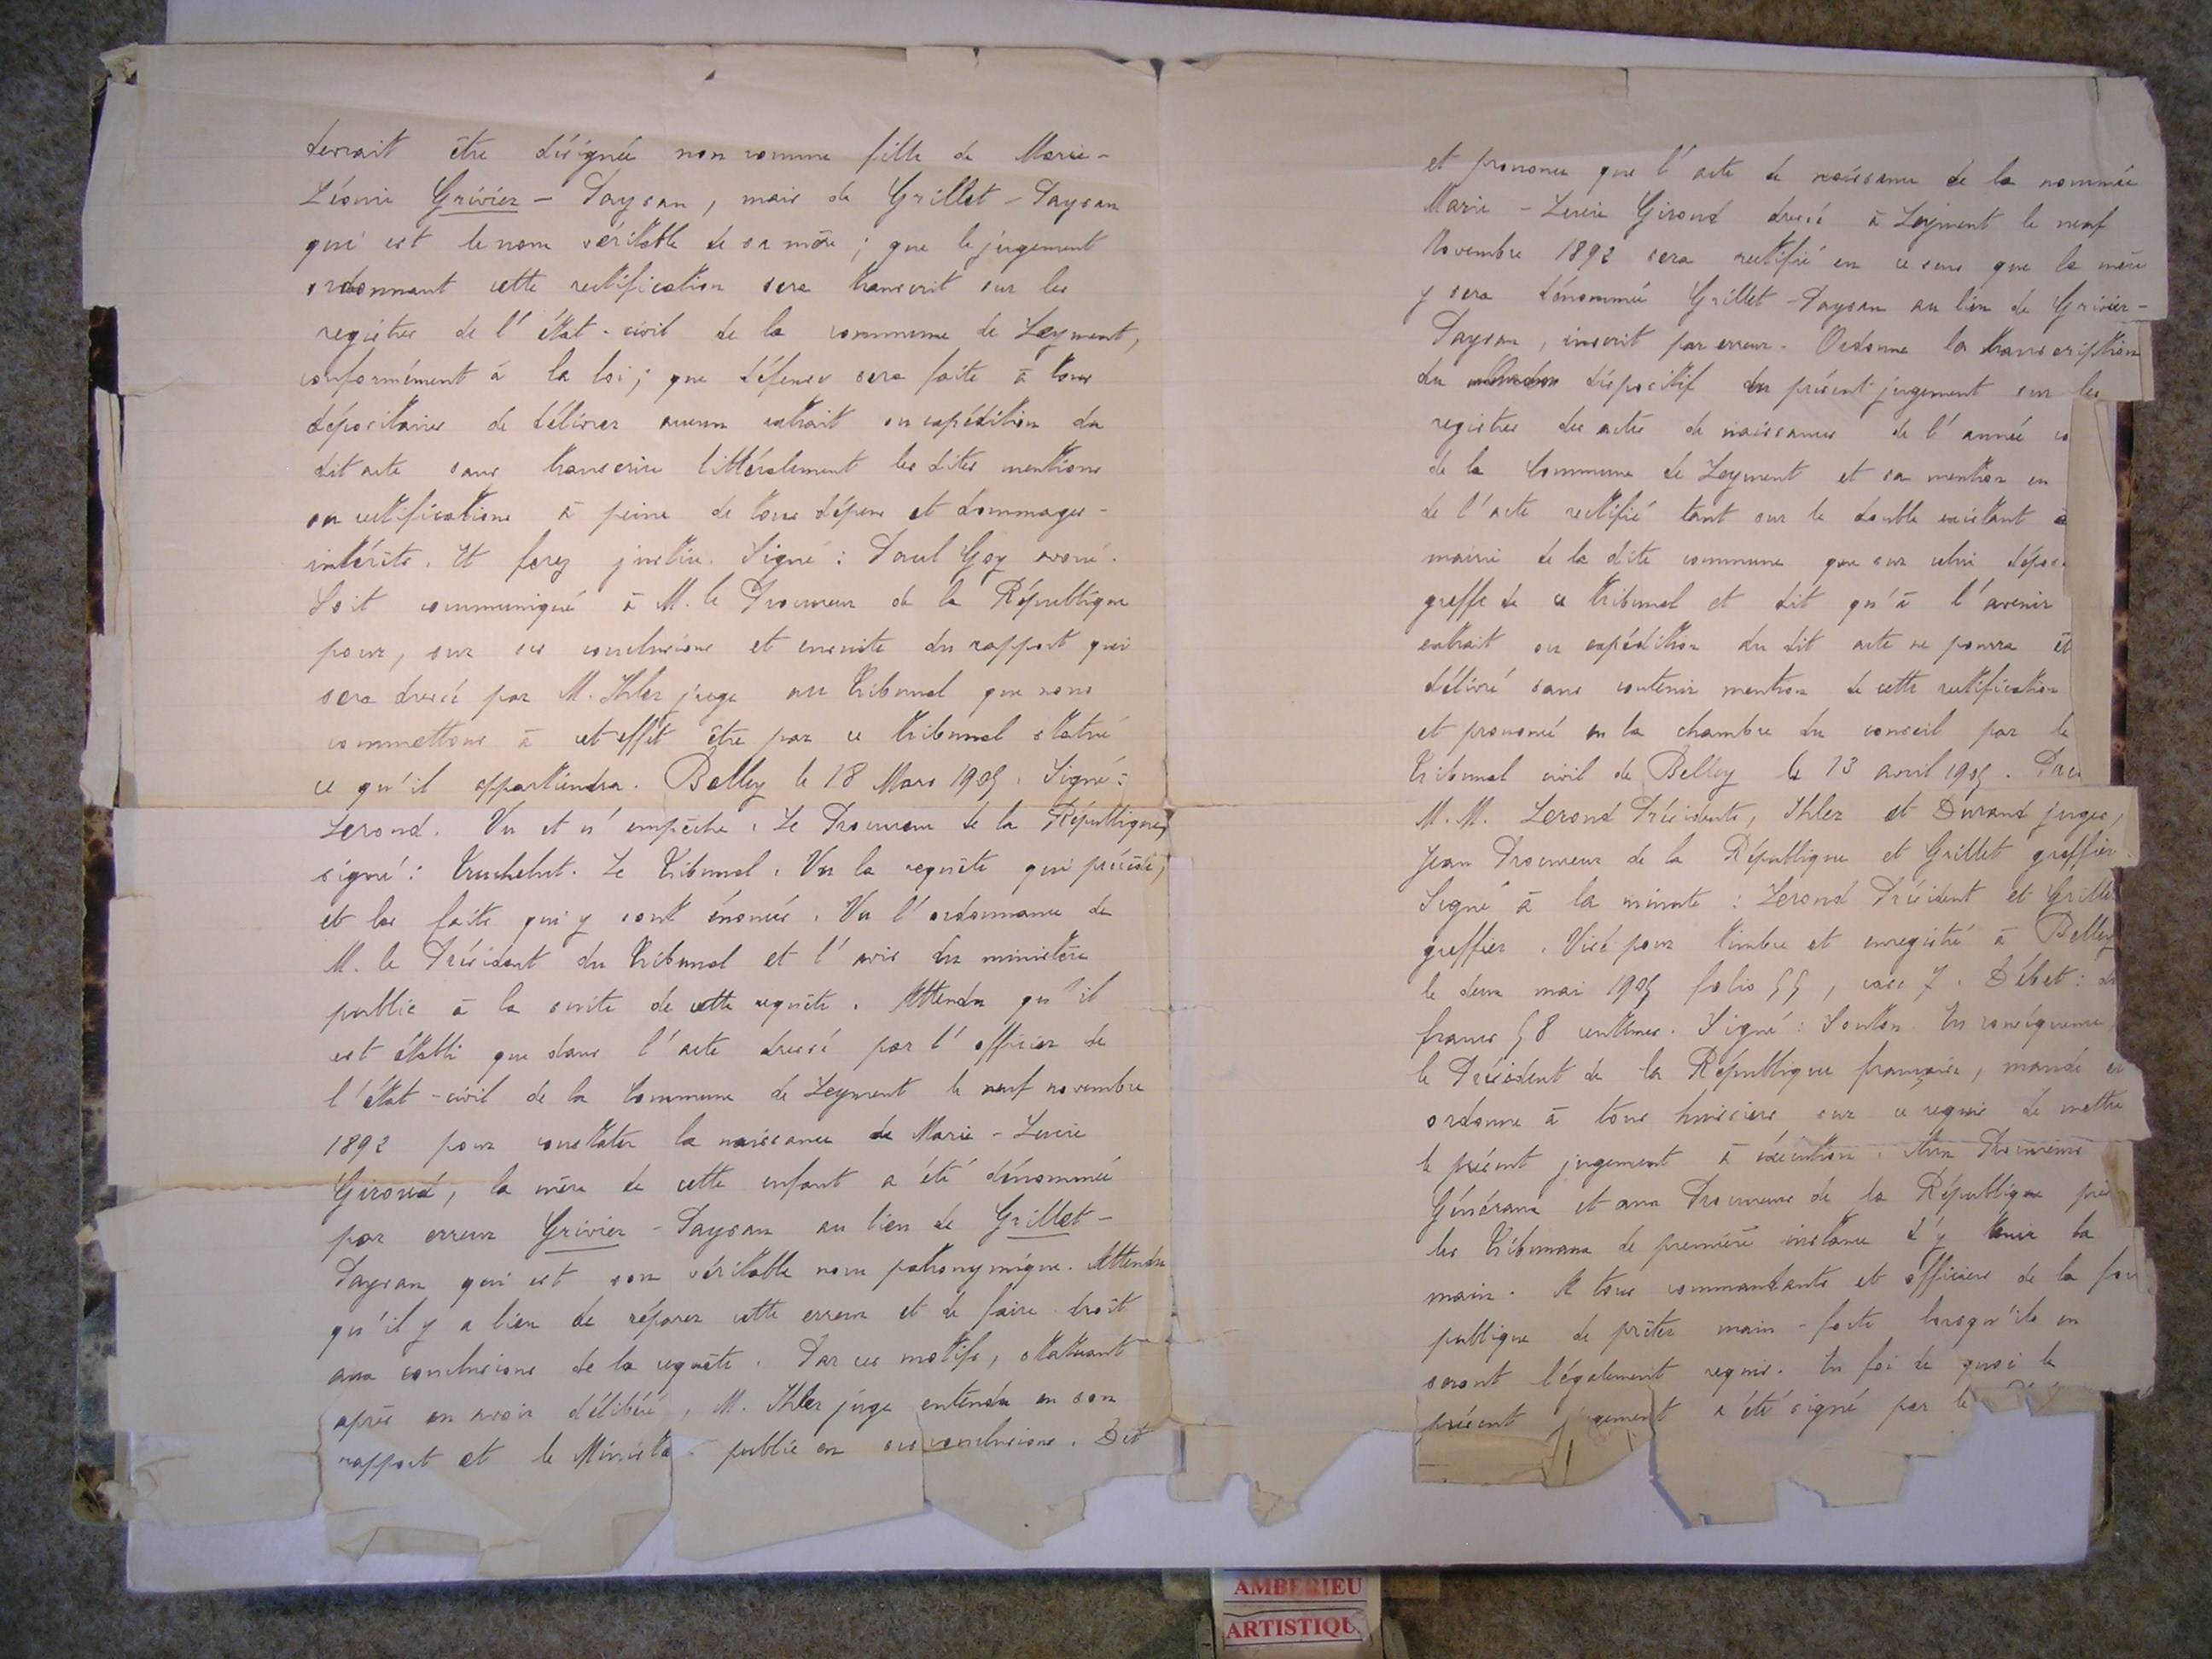 devrait être désignée non comme fille de Marie-
Léonie Grivier - Paysan, mais de Grillet - Paysan
qui est le nom véritable de sa mère ; que le jugement
ordonnant cette rectification sera transcrit sur les
registres de l'état-civil de la commune de Leyment,
conformément à la loi ; que défense sera faite à tous
dépositaires de délivrer aucun extrait ou expédition du
dit acte sans transcrire littéralement les dites mentions
ou rectifications à peine de tous dépens et dommages-
intérêts. Et ferez justice. Signé : Paul Goy avoué.
Soit communiqué à M. le Procureur de la République
pour, sur ses conclusions et ensuite du rapport qui
sera dressé par M. Ihler juge au Tribunal que nous
commettons à cet effet être par ce tribunal statué
ce qu'il appartiendra. Belley le 18 Mars 1905. Signé :
Lerond. Vu et n'empêche. Le Procureur de la République,
signé : Truchelut. Le Tribunal. Vu la requête qui précède,
et les faits qui y sont énoncés. Vu l'ordonnance de
M. le Président du Tribunal et l'avis du ministère
public à la suite de cette requête. Attendu qu'il
est établi que dans l'acte dressé par l'officier de
l'état-civil de la Commune de Leyment le neuf novembre
1892 pour constater la naissance de Marie-Lucie
Giroud, la mère de cette enfant a été dénommée
par erreur Grivier - Paysan au lieu de Grillet -
Paysan qui est son véritable nom patronymique. Attendu
qu'il y a lieu de réparer cette erreur et de faire droit
aux conclusions de la requête. Par ces motifs, statuant
après en avoir délibéré, M. Ihler juge entendu en son
rapport et le Ministè public en ses conclusions. Dit
et prononce que l'acte de naissance de la nommée
Marie - Lucie Giroud dressé à Leyment le neuf
Novembre 1892 sera rectifié en ce sens que la mère
y sera dénommée Grillet - Paysan au lieu de Grivier -
Paysan, inscrit par erreur. Ordonne la transcription
du dispositif du présent jugement sur les
registres des actes de naissances de l'année co
de la Commune de Leyment et sa mention en
de l'acte rectifié tant sur le double existant à
mairie de la dite commune que sur celui dépos
greffe de ce tribunal et dit qu'à l'avenir
extrait ou expédition du dit acte ne pourra êt
délivré sans contenir mention de cette rectification
et prononcé en la chambre du conseil par le
Tribunal civil de Belley le 13 avril 1905.
M. M. Lerond Présidents, Ihler et Durand juges,
Jean Procureur de la République et Grillet greffier.
Signé à la minute : Lerond Président et Grillet
greffier. Visé pour timbre et enregistré à Belley
le deux mai 1905 folio 55, case 7. Débet :
francs 58 centimes. Signé : Soulon. En conséquence,
le Président de la République française, mande et
ordonne à tous huissiers sur ce requis de mettre
le présent jugement à exécution. Aux Procureurs
Généraux et aux Procureurs de la République près
les Tribunaux de première instance d'y tenir la
main. A tous commandants et officiers de la for
publique de prêter main - forte lorsqu'ils en
seront légalement requis. En foi de quoi le
présent jugement a été signé par le
AMBERIEU
ARTISTIQU